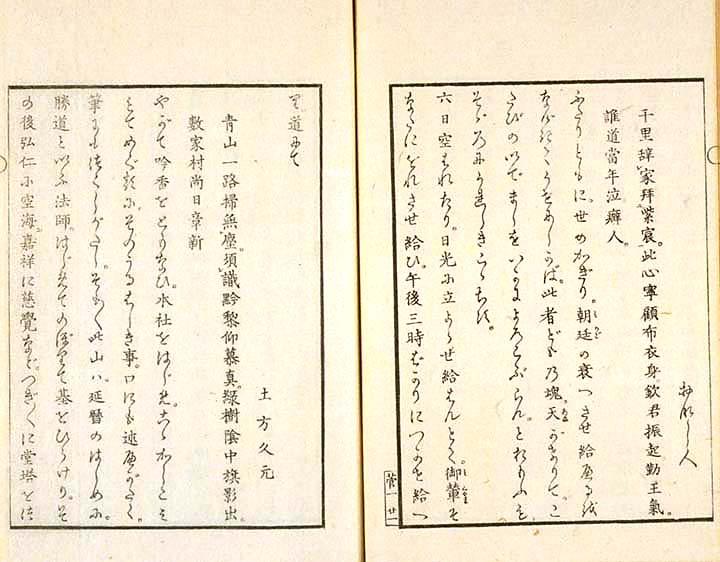 おなし人
千里辞家拜紫宸。此心寧顧布衣身。欽君振起勤王氣。
誰道當年泣癖人。
ふたりともに。世のかぎり。朝廷の衰へさせ給へるを
此者どもの塊。天がけりて。こ
たびのいでましをいかによろこぶらん。とおもふも
そゞろにかなしきこゝちす。
六日空はれたり。日光に立よらせ給はんとて。御輦を
させ給ひ。午後三時ばかりにつかせ給へ
り。道にて
土方久元
青山一路掃無塵。須識黔黎仰慕真。緑樹陰中旗影出。
數家村尚日章新
やがて吟香をともなひ。本社をはじめ。こゝかしこ
とてめぐるに。そのうるはしき事。口にも述べがたく。
筆にもつくしがたし。そも〱此山ハ。延暦のはじめに。
勝道といふ法師。はじめてのぼりて基をひらけり。そ
の後弘仁に空海。嘉祥に慈覺など。つぎ〱に堂塔をつ